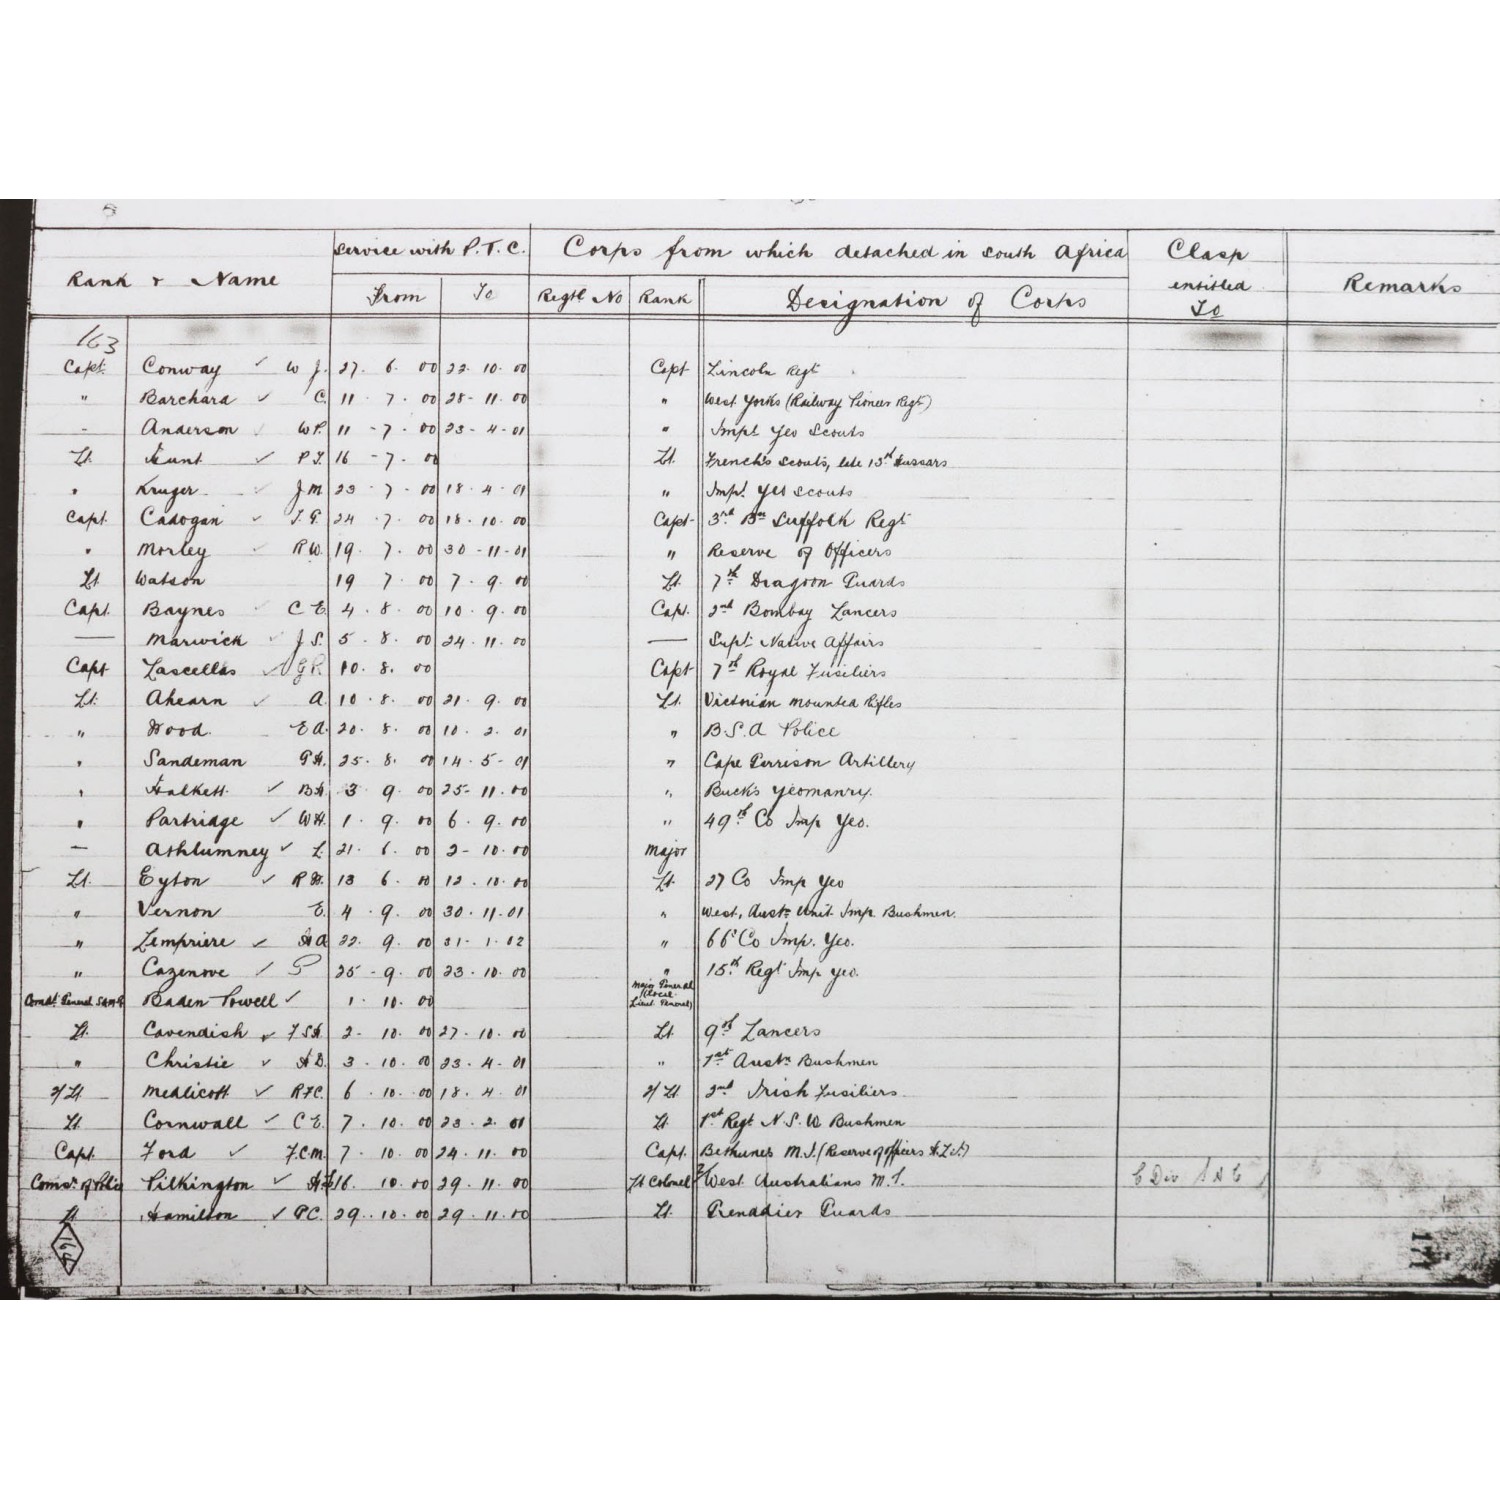 Rank & Name Service with P.T.C. Corps from which detached in South Africa Clasp entitled To Remarks
From To Regtl No Rank Designation of Corps
163
Capt. Conway ✓ W J. 27. 6. 00 22. 10. 00 Capt Lincoln Regt
" Barchard ✓ C. 11 - 7. 00 28 - 11. 00 " West Yorks (Railway Pioneer Regt)
- Anderson ✓ W P. 11 - 7. 00 23 - 4 - 01 " Impl Yeo Scouts
Lt. Hunt ✓ P. 16 - 7. 00 Lt. French's Scouts, late 13th Hussars
" Kruger ✓ J M 23 - 7. 00 18. 4. 01 " Impl Yeo Scouts
Capt. Cadogan ✓ 24 . 7. 00 18. 10. 00 Capt 3rd Bn Suffolk Regt
" Morley ✓ R W. 19. 7. 00 30 - 11 - 01 " Reserve of Officers
Lt Watson 19 7. 00 7. 9. 00 Lt. 7th Dragoon Guards
Capt. Baynes ✓ C E. 4. 8. 00 10. 9. 00 Capt. 2nd Bombay Lancers
— Marwick ✓ J S. 5. 8. 00 24. 11. 00 — Supt. Native Affairs
Capt Lascelles ✓ G R. 10. 8. 00 Capt 7th Royal Fusiliers
Lt. Ahearn ✓ A. 10. 8. 00 21. 9. 00 Lt. Victorian Mounted Rifles
" Hood. E A. 20. 8. 00 10. 2. 01 " B.S.A Police
" Sandeman G H. 25. 8. 00 14 - 5 - 01 " Cape Garrison Artillery
" Halkett ✓ B H. 3 9. 00 25 - 11. 00 " Bucks Yeomanry.
" Partridge ✓ W H. 1. 9. 00 6. 9. 00 " 49th Co Imp Yeo.
— Ashlumney ✓ L. 21. 6. 00 2 - 10. 00 Major
Lt. Eyton ✓ R W. 13 6. 00 12. 10. 00 Lt. 27 Co Imp Yeo
" Vernon E. 4. 9. 00 30. 11. 01 " West, Austn Unit Imp. Bushmen.
" Lempriere ✓ H A 22. 9. 00 31 . 1. 02 " 66 Co Imp. Yeo.
" Cazenove ✓ P 25 - 9. 00 23. 10. 00 " 15th Regt Imp Yeo.
Comdt. General S.A.M.P. Baden-Powell ✓ 1. 10. 00 Major General (Local Lieut. General)
Lt. Cavendish ✓ F S H. 2 - 10. 00 27. 10. 00 Lt. 9th Lancers
" Christie ✓ H D. 3. 10. 00 23. 4. 01 " 1st Austn Bushmen
2/Lt. Medlicott ✓ R F C. 6 . 10. 00 18. 4. 01 2/Lt. 2nd Irish Fusiliers
Lt. Cornwall ✓ C E. 7. 10. 00 23. 2. 01 Lt. 1st Regt N.S.W Bushmen
Capt. Ford ✓ F.C.M. 7. 10. 00 24. 11. 00 Capt. Bethunes M.I. (Reserve of Officers H.L.I.)
Comsr. of Police Pilkington ✓ 16. 10. 00 29. 11. 00 Lt Colonel West Australians M.I.
Lt Hamilton ✓ P C. 29. 10. 00 29. 11. 00 Lt. Grenadier Guards
164
171